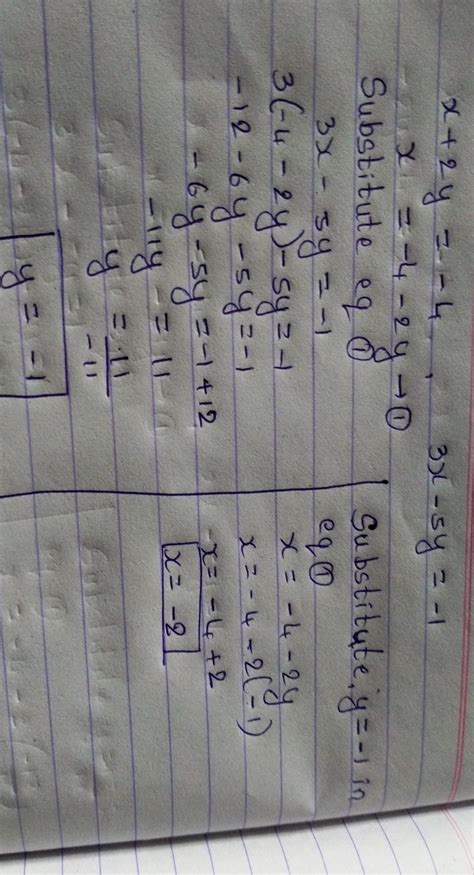 x + 2y = -4 , 3x - 5y = -1
x = -4 - 2y → ①
Substitute eq ①
3x - 5y = -1
3(-4 - 2y) - 5y = -1
-12 - 6y - 5y = -1
-6y - 5y = -1 + 12
-11y = 11
y = 11/-11
y = -1
Substitute, y = -1 in
eq ①
x = -4 - 2y
x = -4 - 2(-1)
x = -4 + 2
x = -2